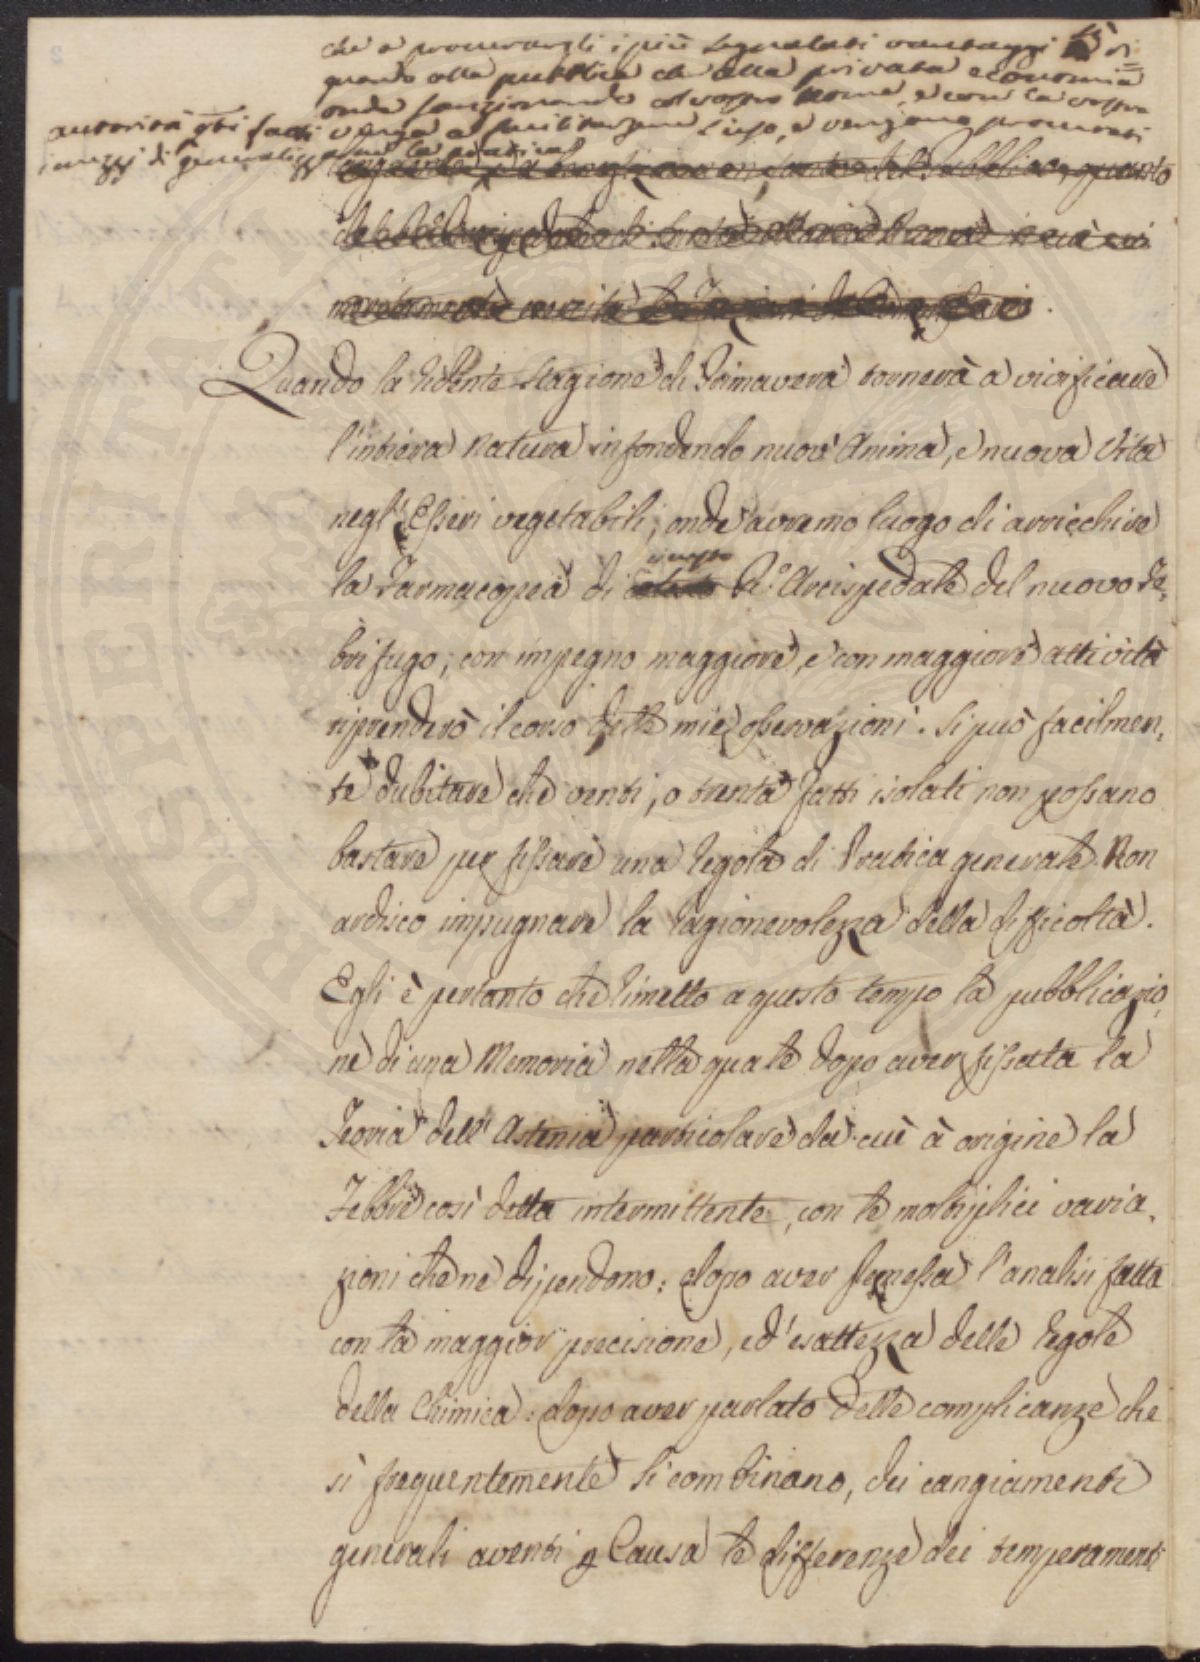 che a procurargli i più segnalati vantaggi sì ri=
guardo alla pubblica che alla privata economia
onde sanzionando col vostro Nome, e con la vostra
autorità questi fatti venga a l'uso, e vengano procurati
i mezzi di
Quando la ridente stagione di Primavera tornerà a vivificare
l'intiera Natura infondendo nuov' Anima, e nuova Vita
negl' Esseri vegetabili, onde avremo luogo di arricchire
la Farmacopea di questo R.° Arcispedale del nuovo Fe,
brifugo; con impegno maggiore, e con maggiore attività
riprenderò il corso delle mie osservazioni. Si può facilmen,
te dubitare che venti, o trenta fatti isolati non possano
bastare per fissare una regola di Pratica generale. Non
ardisco impugnare la ragionevolezza della difficoltà.
Egli è pertanto che rimetto a questo tempo la pubblicazio,
ne di una Memoria nella quale dopo aver fissata la
Teoria dell' Astenia particolare da cui à origine la
Febbre così detta intermittente, con le moltiplici varia,
zioni che ne dipendono: dopo aver premessa l'analisi fatta
con la maggior precisione, ed esattezza delle regole
della Chimica: dopo aver parlato delle complicanze che
sì frequentemente si combinano, dei cangiamenti
generali aventi p Causa le differenze dei temperamenti